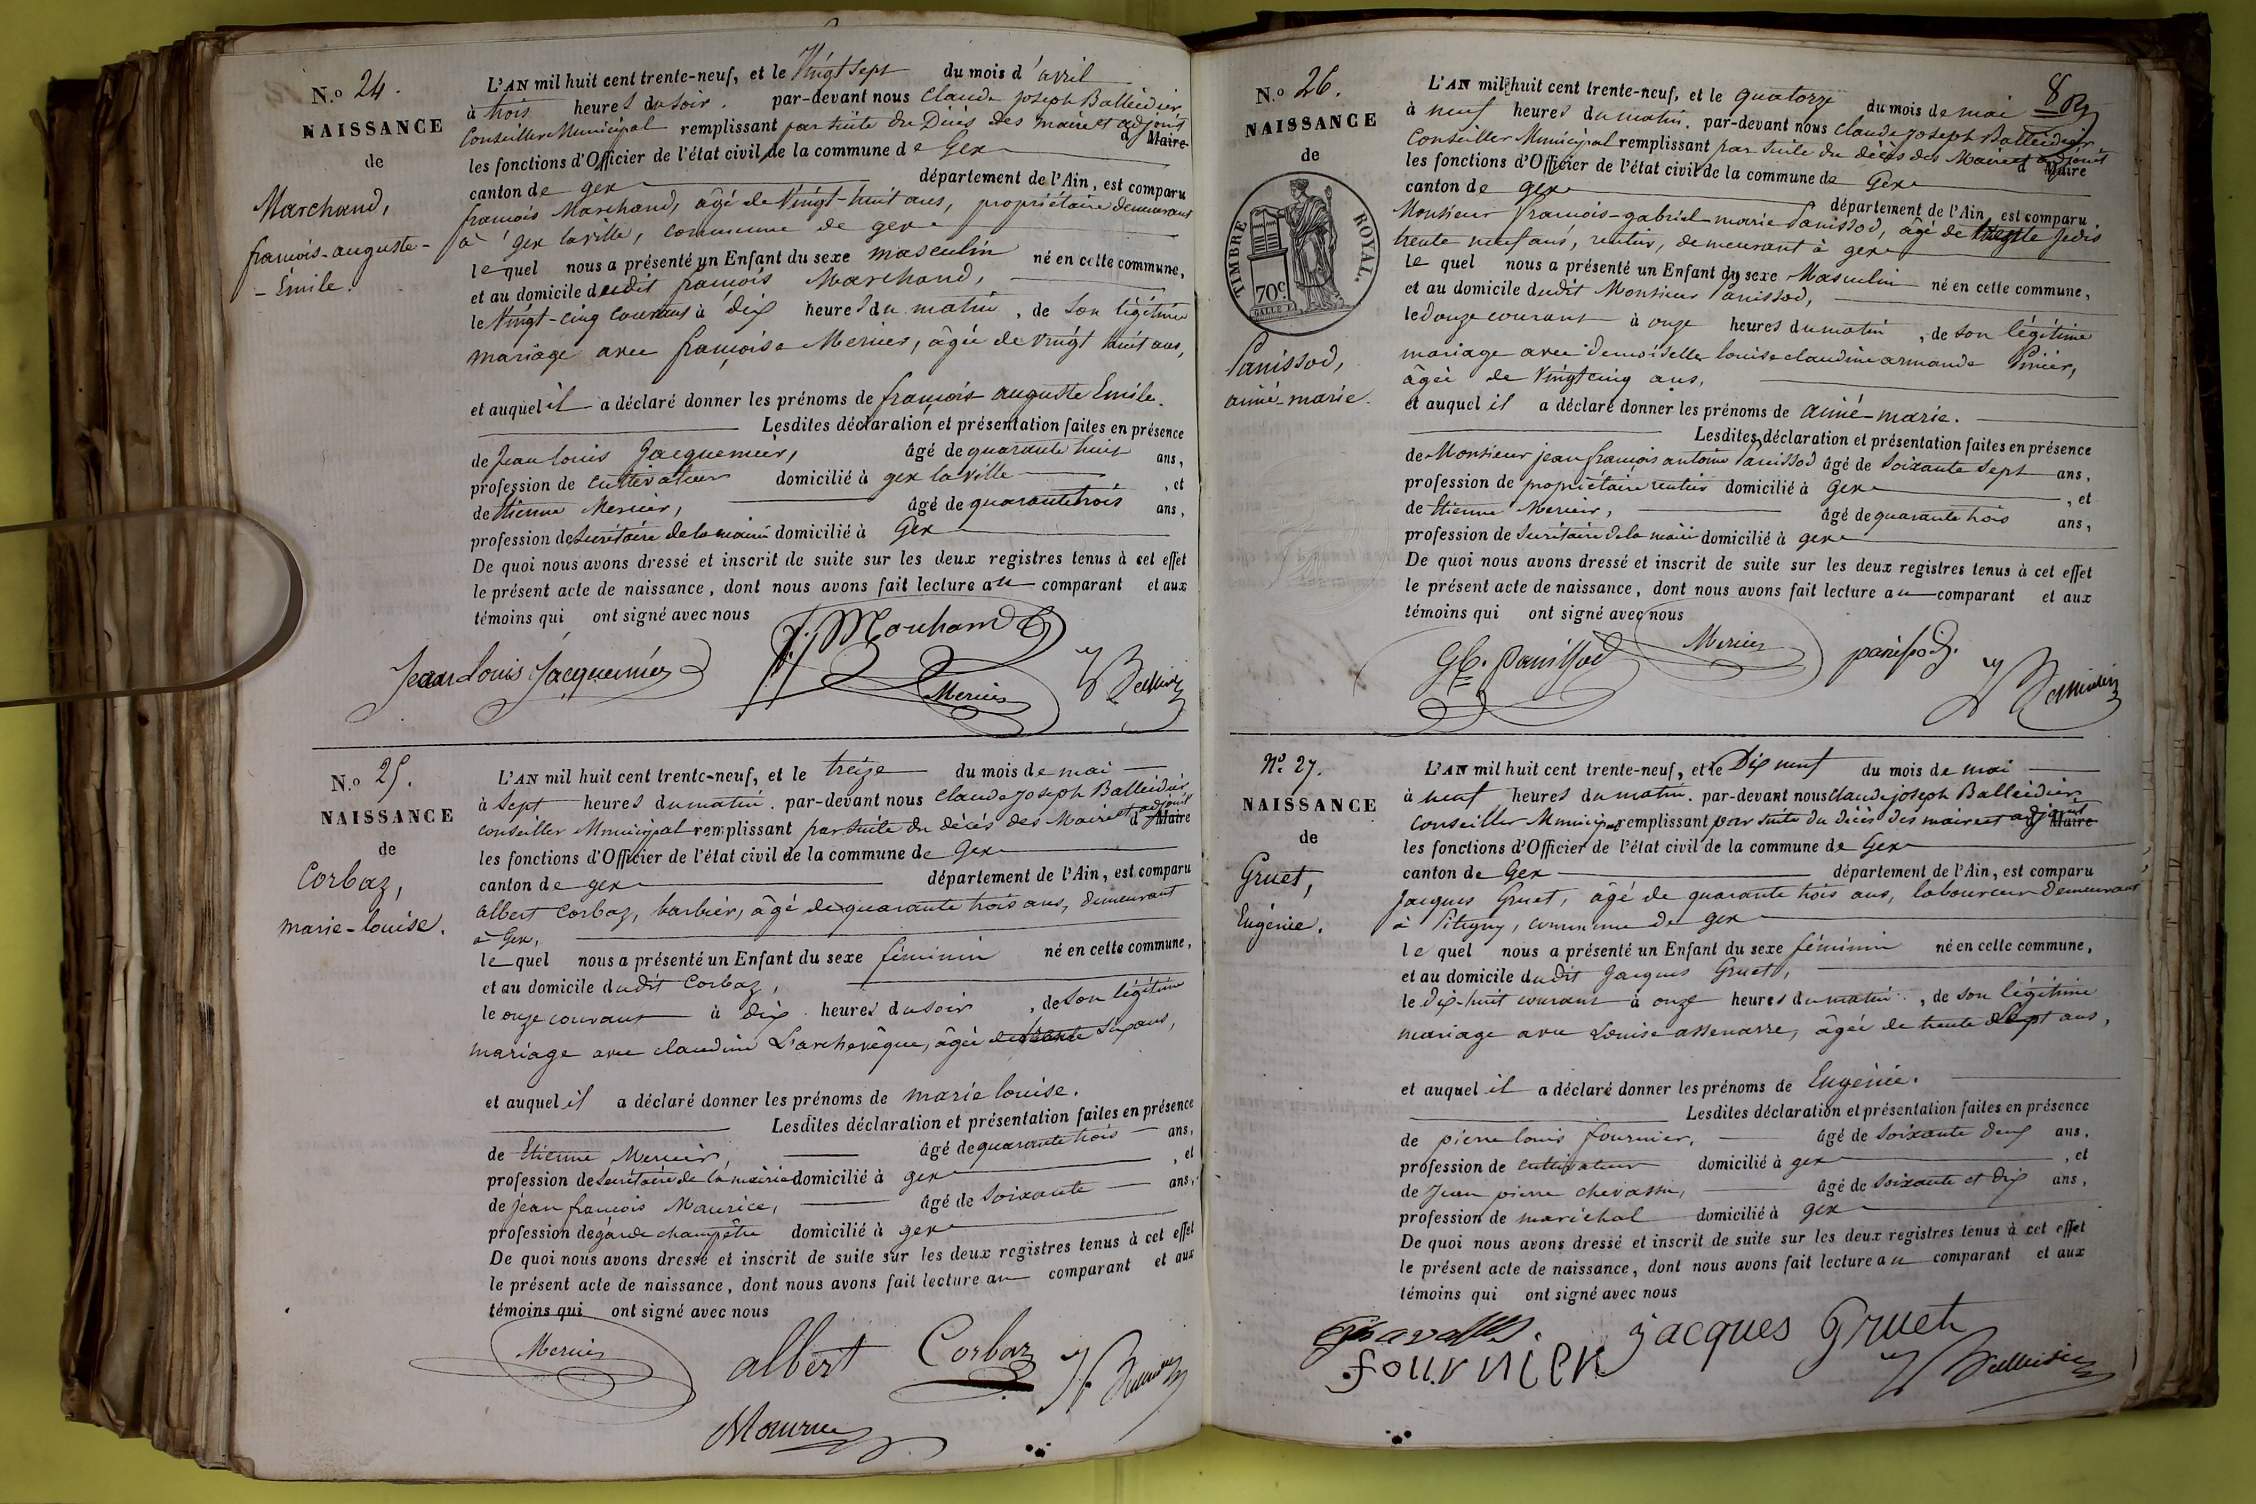 N.o 24.
NAISSANCE
de
Marchand,
françois-auguste-
- Émile.
L'AN mil huit cent trente-neuf, et le Vingt sept du mois d'avril
à trois heures du soir. par-devant nous Claude joseph Balleidier
Conseiller Municipal remplissant par suite du Décès des maire et adjoint
les fonctions d'Officier de l'état civil de la commune de Gex d Maire
canton de gex département de l'Ain, est comparu
françois Marchand, âgé de Vingt-huit ans, propriétaire demeurant
à gex la ville, commune de gex
le quel nous a présenté un Enfant du sexe masculin né en cette commune,
et au domicile dudit françois Marchand,
le Vingt-cinq courant à dix heures du matin, de son légitime
mariage avec françoise Mercier, âgée de vingt huit ans,
et auquel il a déclaré donner les prénoms de françois auguste Emile.
Lesdites déclaration et présentation faites en présence
de Jean louis Jacquemier, âgé de quarante huit ans,
profession de cultivateur domicilié à gex la ville, et
de Etienne Mercier, âgé de quarante trois ans,
profession de Secrétaire de la mairie domicilié à Gex
De quoi nous avons dressé et inscrit de suite sur les deux registres tenus à cet effet
le présent acte de naissance, dont nous avons fait lecture au comparant et aux
témoins qui ont signé avec nous
f. Marchand
Jean Louis Jacquemier
Mercier
N.o 25.
NAISSANCE
de
Corbaz,
marie-louise.
L'AN mil huit cent trente-neuf, et le treize du mois de mai
à Sept heures du matin. par-devant nous Claude joseph Balleidier
conseiller Municipal remplissant par suite du décès des Maire et adjoint
d Maire
les fonctions d'Officier de l'état civil de la commune de Gex
canton de gex département de l'Ain, est comparu
albert Corbaz, barbier, âgé de quarante trois ans, demeurant
à Gex,
le quel nous a présenté un Enfant du sexe féminin né en cette commune,
et au domicile dudit Corbaz,
le onze courant à dix heures du soir, de son légitime
mariage avec claudine L'archevêque, âgée de trente six ans,
et auquel il a déclaré donner les prénoms de marie louise.
Lesdites déclaration et présentation faites en présence
de Etienne Mercier, âgé de quarante trois ans,
profession de Secrétaire de la mairie domicilié à gex, et
de jean françois Maurice, âgé de Soixante ans,
profession de garde champêtre domicilié à gex
De quoi nous avons dressé et inscrit de suite sur les deux registres tenus à cet effet
le présent acte de naissance, dont nous avons fait lecture au comparant et aux
témoins qui ont signé avec nous
Mercier albert Corbaz
Maurice
8
N.o 26.
NAISSANCE
de
TIMBRE ROYAL.
70c.
Panissod,
aimé-marie.
L'AN mil huit cent trente-neuf, et le quatorze du mois de mai
à neuf heures du matin. par-devant nous Claude joseph Balleidier
Conseiller Municipal remplissant par suite du décès des Maire et adjoint
d Maire
les fonctions d'Officier de l'état civil de la commune de Gex
canton de gex département de l'Ain, est comparu
Monsieur françois-gabriel-marie Panissod, âgé de
trente neuf ans, rentier, demeurant à gex
le quel nous a présenté un Enfant du sexe Masculin né en cette commune,
et au domicile dudit Monsieur Panissod,
le douze courant à onze heures du matin, de son légitime
mariage avec demoiselle louise claudine armande Pinier,
âgée de Vingt cinq ans,
et auquel il a déclaré donner les prénoms de aimé-marie.
Lesdites déclaration et présentation faites en présence
de Monsieur jean françois antoine Panissod âgé de Soixante Sept ans,
profession de propriétaire rentier domicilié à Gex, et
de Etienne Mercier, âgé de quarante trois ans,
profession de Secrétaire de la mairie domicilié à gex
De quoi nous avons dressé et inscrit de suite sur les deux registres tenus à cet effet
le présent acte de naissance, dont nous avons fait lecture au comparant et aux
témoins qui ont signé avec nous
Gb. Panissod Mercier panissod.
N.o 27.
NAISSANCE
de
Gruet,
Eugénie.
L'AN mil huit cent trente-neuf, et le Dix neuf du mois de mai
à neuf heures du matin. par-devant nous Claude joseph Balleidier
Conseiller Municipal remplissant par suite du décès des maire et adjoint
d Maire
les fonctions d'Officier de l'état civil de la commune de Gex
canton de Gex département de l'Ain, est comparu
Jacques Gruet, âgé de quarante trois ans, laboureur demeurant
à Pitegny, commune de gex
le quel nous a présenté un Enfant du sexe féminin né en cette commune,
et au domicile dudit Jacques Gruet,
le dix-huit courant à onze heures du matin, de son légitime
mariage avec Louise assenarre, âgée de trente Sept ans,
et auquel il a déclaré donner les prénoms de Eugénie.
Lesdites déclaration et présentation faites en présence
de pierre louis fournier, âgé de Soixante deux ans,
profession de cultivateur domicilié à gex, et
de Jean pierre chevassu, âgé de Soixante et dix ans,
profession de maréchal domicilié à gex
De quoi nous avons dressé et inscrit de suite sur les deux registres tenus à cet effet
le présent acte de naissance, dont nous avons fait lecture au comparant et aux
témoins qui ont signé avec nous
jacques Gruet
fournier